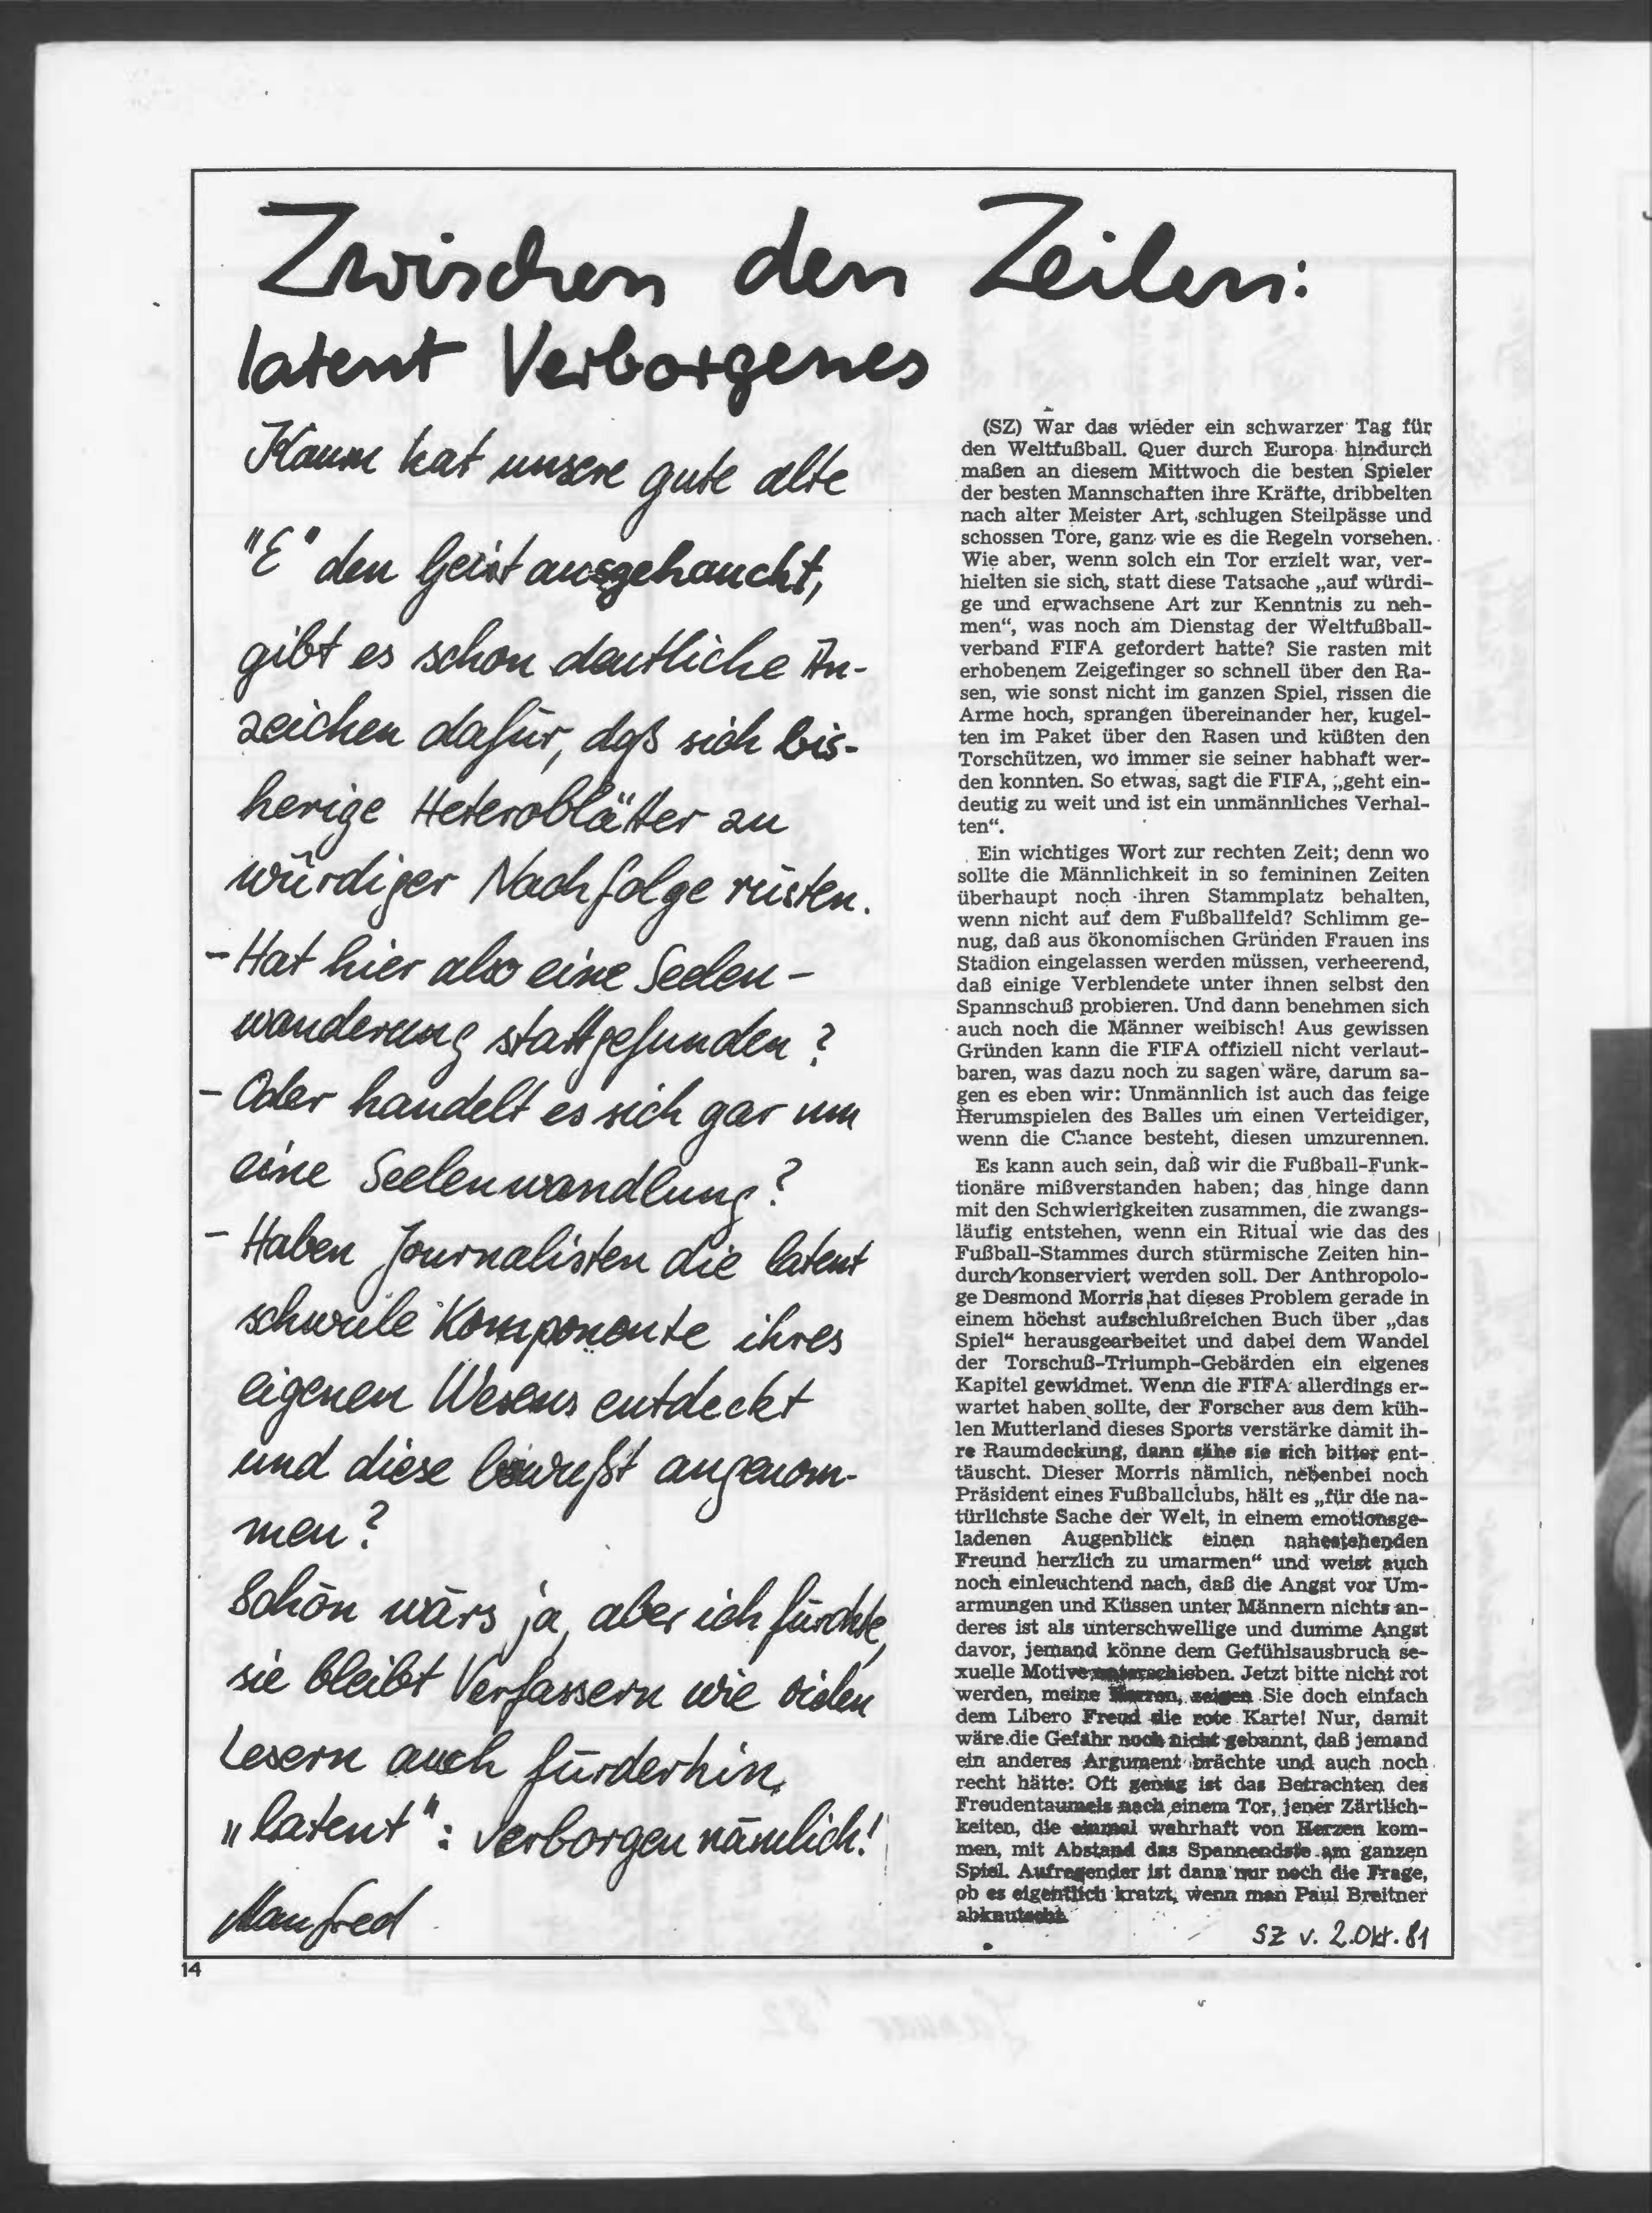 Zwischen den Zeilen:
latent Verborgenes
Kaum hat unsere gute alte
"E" den Geist ausgehaucht,
gibt es schon deutliche An-
zeichen dafür, daß sich bis-
herige Heteroblätter zu
würdiger Nachfolge rüsten.
- Hat hier also eine Seelen-
wanderung stattgefunden?
- Oder handelt es sich gar um
eine Seelenwandlung?
- Haben Journalisten die latent
schwule Komponente ihres
eigenen Wesens entdeckt
und diese bewußt angenom-
men?
Schön wärs ja, aber ich fürchte,
sie bleibt Verfassern wie vielen
Lesern auch fürderhin
„latent": verborgen nämlich!
Manfred
(SZ) War das wieder ein schwarzer Tag für
den Weltfußball. Quer durch Europa hindurch
maßen an diesem Mittwoch die besten Spieler
der besten Mannschaften ihre Kräfte, dribbelten
nach alter Meister Art, schlugen Steilpässe und
schossen Tore, ganz wie es die Regeln vorsehen.
Wie aber, wenn solch ein Tor erzielt war, ver-
hielten sie sich, statt diese Tatsache „auf würdi-
ge und erwachsene Art zur Kenntnis zu neh-
men“, was noch am Dienstag der Weltfußball-
verband FIFA gefordert hatte? Sie rasten mit
erhobenem Zeigefinger so schnell über den Ra-
sen, wie sonst nicht im ganzen Spiel, rissen die
Arme hoch, sprangen übereinander her, kugel-
ten im Paket über den Rasen und küßten den
Torschützen, wo immer sie seiner habhaft wer-
den konnten. So etwas, sagt die FIFA, „geht ein-
deutig zu weit und ist ein unmännliches Verhal-
ten“.
Ein wichtiges Wort zur rechten Zeit; denn wo
sollte die Männlichkeit in so femininen Zeiten
überhaupt noch ihren Stammplatz behalten,
wenn nicht auf dem Fußballfeld? Schlimm ge-
nug, daß aus ökonomischen Gründen Frauen ins
Stadion eingelassen werden müssen, verheerend,
daß einige Verblendete unter ihnen selbst den
Spannschuß probieren. Und dann benehmen sich
auch noch die Männer weibisch! Aus gewissen
Gründen kann die FIFA offiziell nicht verlaut-
baren, was dazu noch zu sagen wäre, darum sa-
gen es eben wir: Unmännlich ist auch das feige
Herumspielen des Balles um einen Verteidiger,
wenn die Chance besteht, diesen umzurennen.
Es kann auch sein, daß wir die Fußball-Funk-
tionäre mißverstanden haben; das hinge dann
mit den Schwierigkeiten zusammen, die zwangs-
läufig entstehen, wenn ein Ritual wie das des
Fußball-Stammes durch stürmische Zeiten hin-
durch konserviert werden soll. Der Anthropolo-
ge Desmond Morris hat dieses Problem gerade in
einem höchst aufschlußreichen Buch über „das
Spiel“ herausgearbeitet und dabei dem Wandel
der Torschuß-Triumph-Gebärden ein eigenes
Kapitel gewidmet. Wenn die FIFA allerdings er-
wartet haben sollte, der Forscher aus dem küh-
len Mutterland dieses Sports verstärke damit ih-
re Raumdeckung, dann sähe sie sich bitter ent-
täuscht. Dieser Morris nämlich, nebenbei noch
Präsident eines Fußballclubs, hält es „für die na-
türlichste Sache der Welt, in einem emotionsge-
ladenen Augenblick einen nahestehenden
Freund herzlich zu umarmen“ und weist auch
noch einleuchtend nach, daß die Angst vor Um-
armungen und Küssen unter Männern nichts an-
deres ist als unterschwellige und dumme Angst
davor, jemand könne dem Gefühlsausbruch se-
xuelle Motive unterschieben. Jetzt bitte nicht rot
werden, meine Herren, zeigen Sie doch einfach
dem Libero Freud die rote Karte! Nur, damit
wäre die Gefahr noch nicht gebannt, daß jemand
ein anderes Argument brächte und auch noch
recht hätte: Oft genug ist das Betrachten des
Freudentaumels nach einem Tor, jener Zärtlich-
keiten, die einmal wahrhaft von Herzen kom-
men, mit Abstand das Spannendste am ganzen
Spiel. Aufregender ist dann nur noch die Frage,
ob es eigentlich kratzt, wenn man Paul Breitner
abknutscht.
SZ v. 2. Okt. 81
14